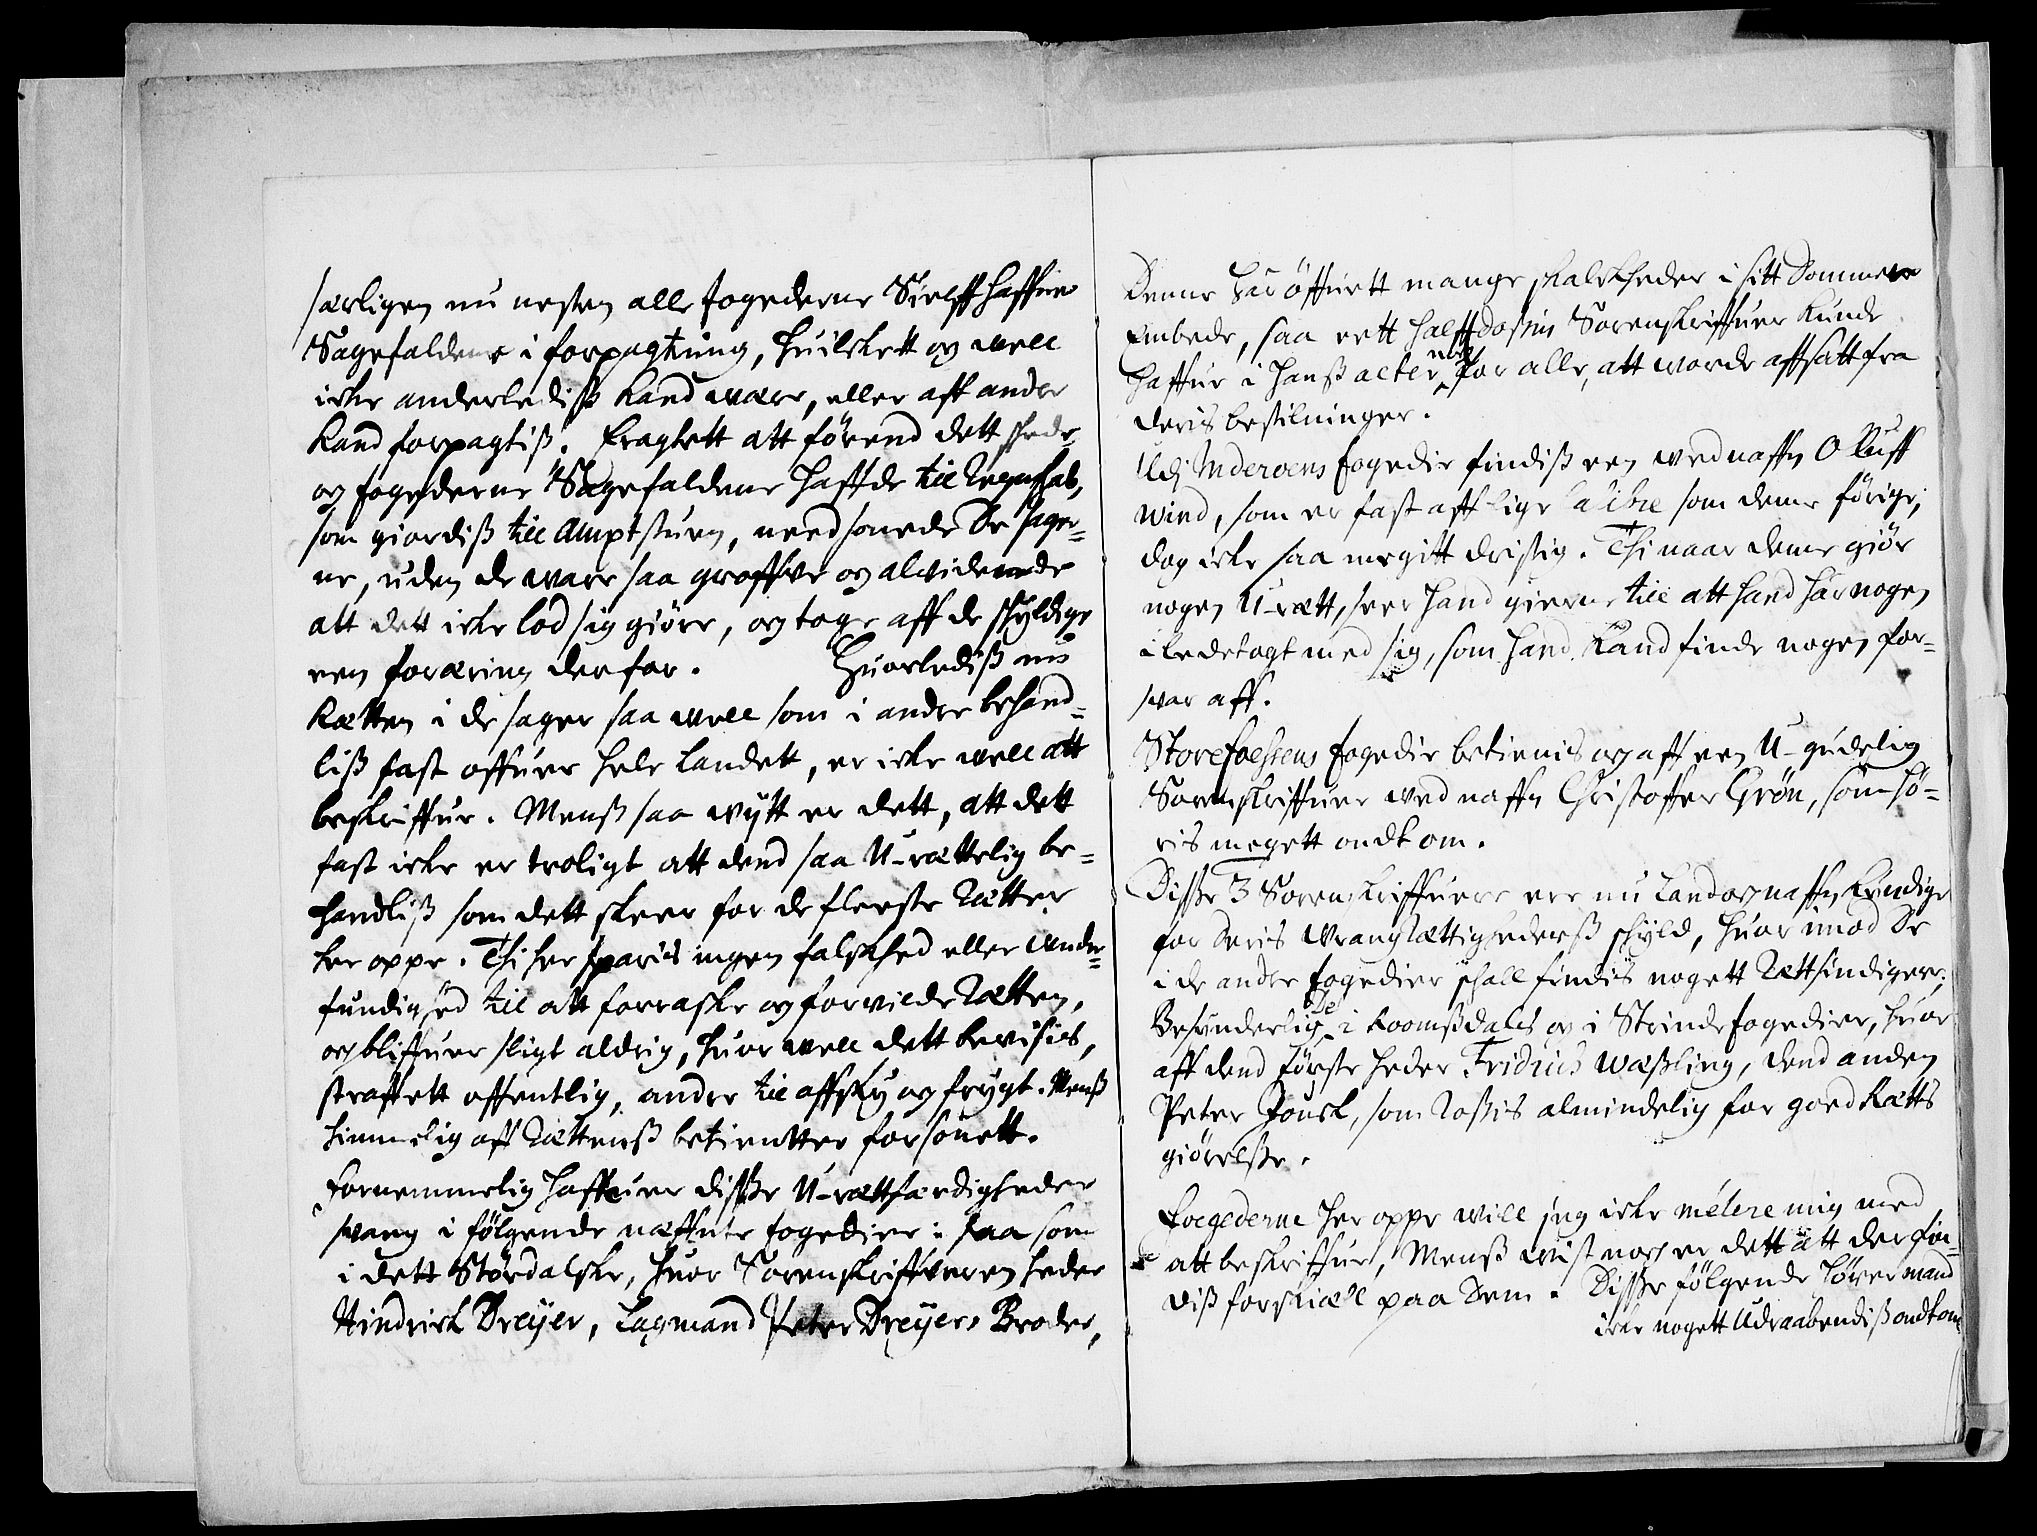 særligen nu nesten alle fogederne Sielff haffue
Sagefaldene i forpagtning, huilckett og well
icke anderlediss kand være, eller aff andre
kand forpagtiss. Eragtett att førend dett skede
og fogederne Sagefaldene haffde till Regnskab,
som giordiss till Amptstuen, needsonede De sager-
ne, uden de ware saa groffve og alvidende
att dett icke lod sig giøre, og toge aff de skyldige
een foræring derfor. Huorlediss nu
Rætten i de sager saa well som i andre behand-
liss fast offuer hele Landett, er icke well att
beskriffue. Menss saa wytt er dett, att dett
fast icke er troligt att dend saa U-rættelig be-
handliss som dett skeer for de fleeste Rætter
her oppe. Thi her sparis ingen falskhed eller Under-
fundighed til att forraske og forvilde Rætten,
og bliffuer sligt aldrig, huor well dett bevisis,
straffett offentlig, andre till affsky og frygt. Menss
himmelig aff Rættenss betientter forsonett.
Fornemmelig haffuer disse U-rættfærdigheder
svang i følgende næffnte fogedier: saa som
i dett Stördalske, huor Sorenskriffveren heder
Hindrick Dreyer, Lagmand Peter Dreyers Broder,
Denne har öffuett mange skalckheder i sitt Dommere
Embede, saa eett halff dossin Sorenskriffuer kunde
haffue i hanss acter nock for alle, att worde affsatt fra
deris bestilninger.
Udj Inderoens fogedie findiss een ved naffn Oluff
Wind, som er fast aff lige calibre som denne förige,
dog icke saa megitt dristig. Thi naar denne giör
nogen U-rætt, seer hand gierne till att hand har nogen
iledetagt med sig, som hand kand finde nogen for-
svar aff.
Storefoessens fogedie betienis og aff een U-gudelig
Sorenskriffuer ved naffn Christoffer Grön, som hö-
ris megett ondt om.
Disse 3 Sorenskriffuere ere nu Land og naffnkundige
for deris Wrangrættighederss skyld, huor imod De
i de andre fogedier skall findis nogett Rættsindigere,
Besynderlig De i Roomssdals og i Strinde fogedier, huor
aff dend Förste heder Fridrich Wæssling, dend anden
Peter Jousk, som Rosis almindelig for goed Rætts
giörelsse.
Foegederne her oppe will jeg icke mélere mig med
att beskriffue, Menss vist nock er dett att der fin-
diss forskiæl paa dem. Disse fölgende hörer mand
icke nogett Udraabendiss ondt om